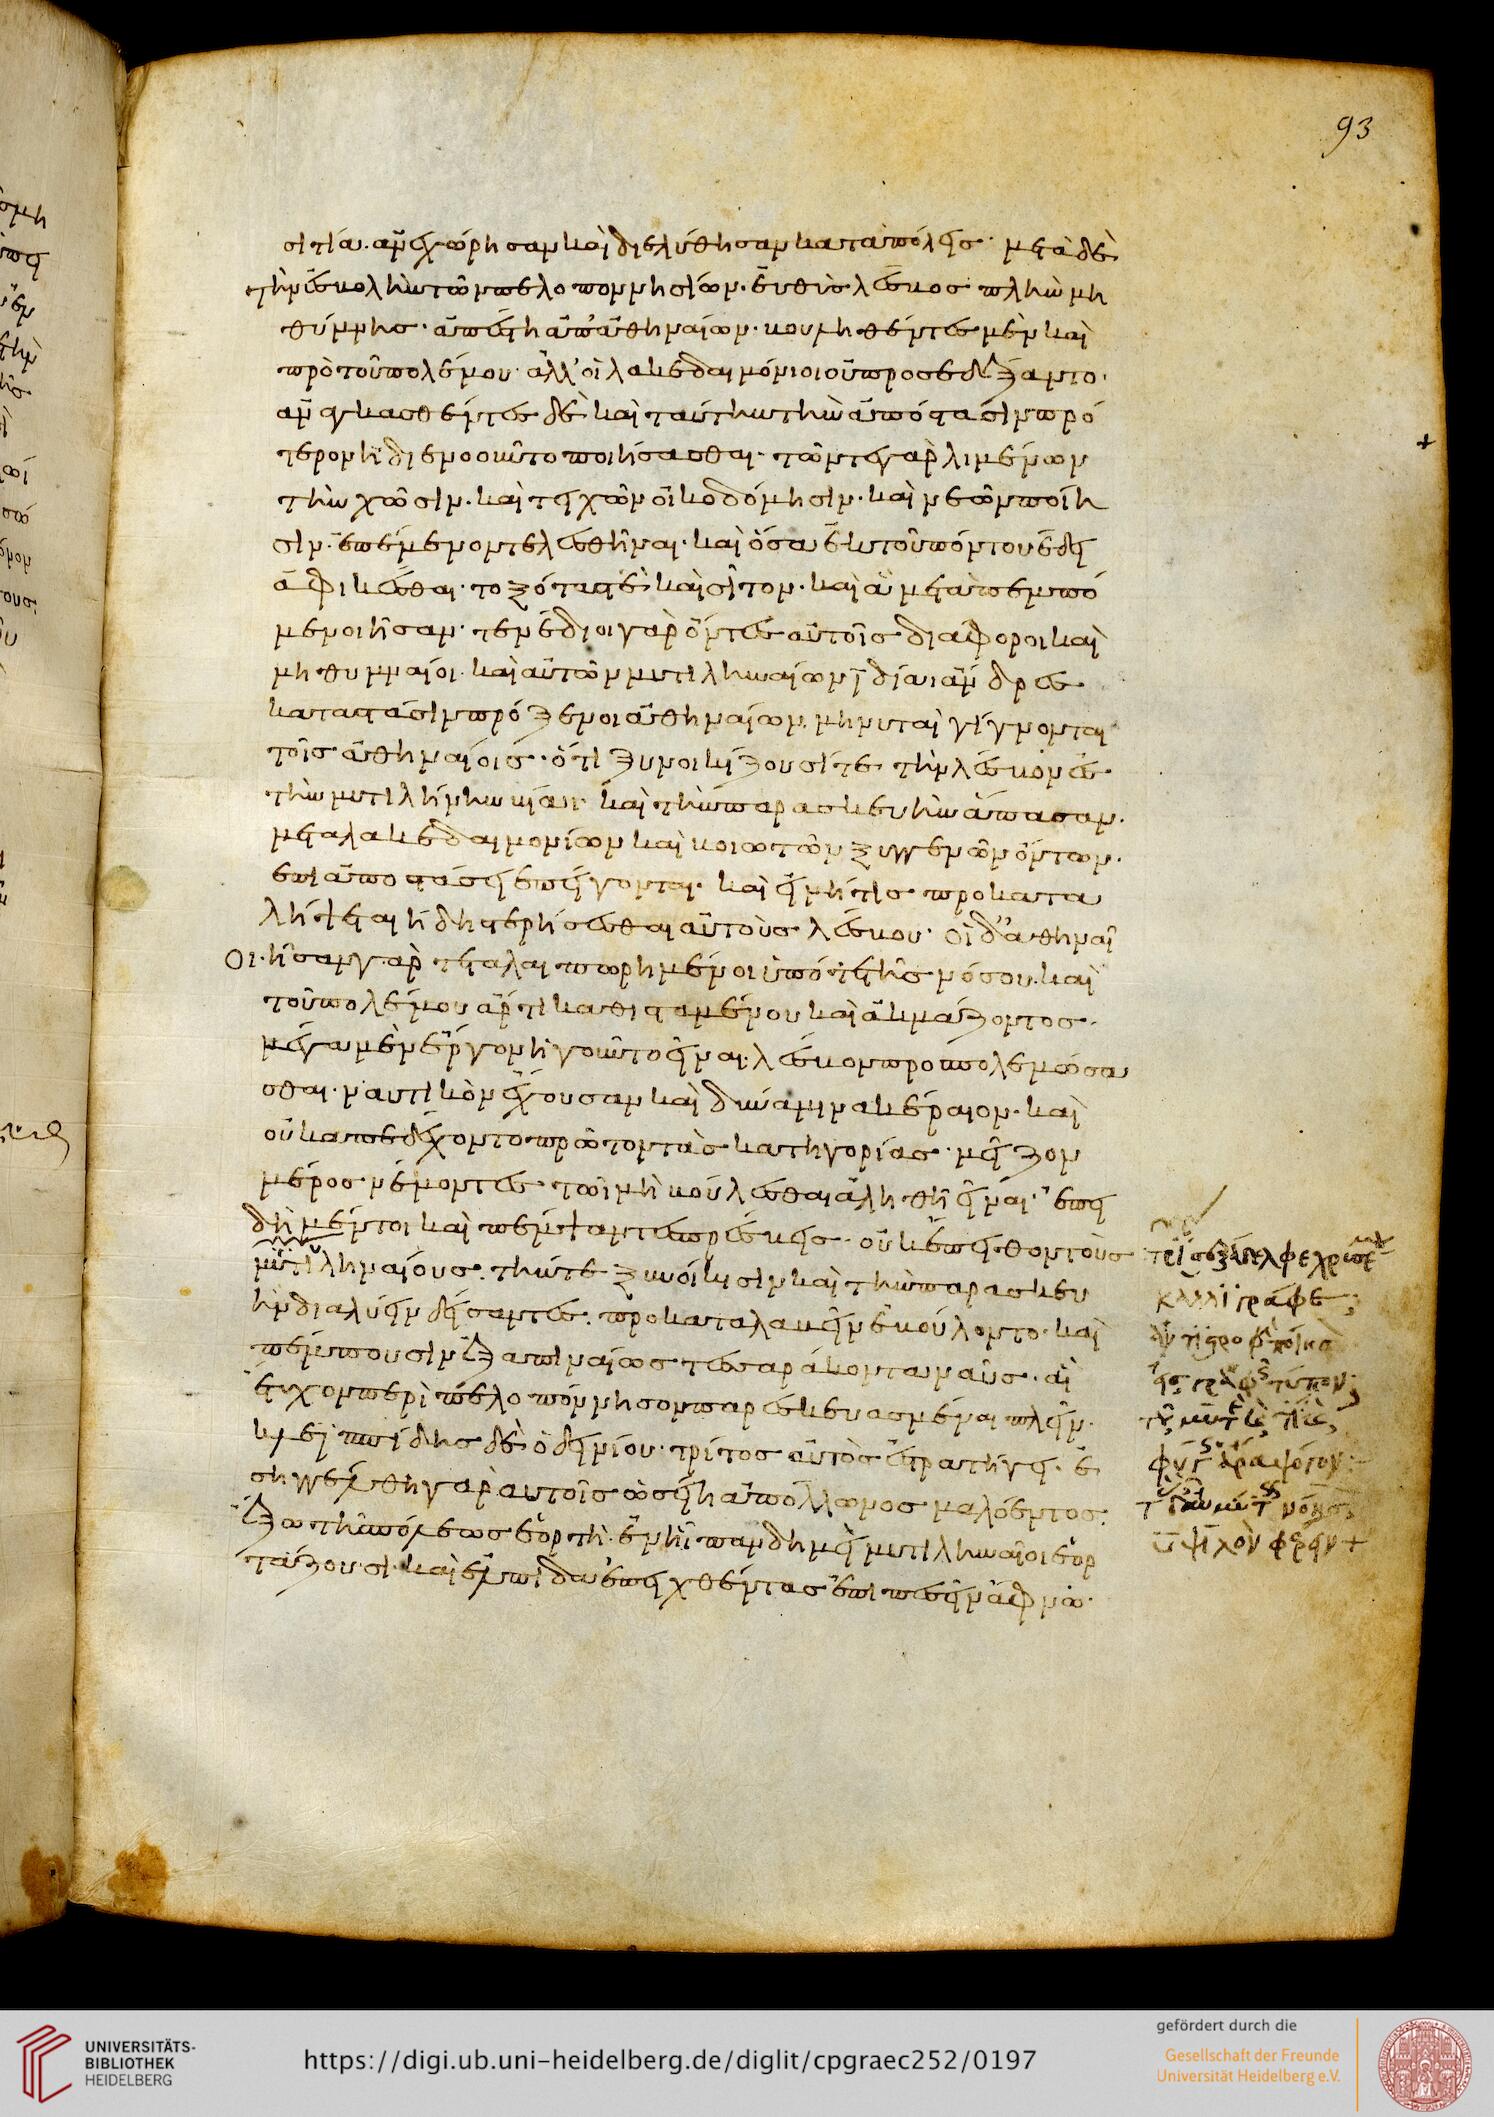 σιτία. ἀνεχώρησαν καὶ διελύθησαν κατὰ πόλεις· μετὰ δὲ
τὴν ἐσβολὴν τῶν πελοποννησίων· εὐθὺς λέσβος πλὴν μη
θύμνης· ἀπέστη ἀπ᾽ ἀθηναίων· βουληθέντες μὲν καὶ
πρὸ τοῦ πολέμου· ἀλλ᾽ οἱ λακεδαιμόνιοι οὐ προσεδέξαντο·
ἀναγκασθέντες δὲ καὶ ταύτην τὴν ἀπόστασιν πρό
τερον ἢ διενοοῦντο ποιήσασθαι· τῶν τε γὰρ λιμένων
τὴν χῶσιν· καὶ τειχῶν οἰκοδόμησιν· καὶ νεῶν ποίη
σιν· ἐπέμενον τελεσθῆναι· καὶ ὅσα ἐκ τοῦ πόντου ἔδει
ἀφικέσθαι· τοξότας τὲ καὶ σῖτον· καὶ ἃ μεταπεμπό
μενοι ἦσαν· τενέδιοι γὰρ ὄντες αὐτοῖς διάφοροι καὶ
μηθυμναίοι· καὶ αὐτῶν μυτιληναίων ἰδίαι ἄνδρες
κατὰ στάσιν πρόξενοι ἀθηναίων· μηνυταὶ γίγνονται
τοῖς ἀθηναίοις· ὅτι ξυνοικίζουσί τε τὴν λέσβον ἐς
τὴν μυτιλήνην βίαι· καὶ τὴν παρασκευὴν ἅπασαν·
μετὰ λακεδαιμονίων καὶ βοιωτῶν ξυγγενῶν ὄντων·
ἐπὶ ἀποστάσει ἐπείγονται· καὶ εἰ μή τις προκατα
λήψεται ἤδη στερήσεσθαι αὐτοὺς λέσβου· οἱ δ᾽ ἀθηναῖ
οι· ἦσαν γὰρ τεταλαιπωρημένοι ὑπό τε τῆς νόσου· καὶ
τοῦ πολέμου ἄρτι καθισταμένου καὶ ἀκμάζοντος·
μέγα μὲν ἔργον ἡγοῦντο εἶναι· λέσβον προσπολεμώσα
σθαι· ναυτικὸν ἔχουσαν καὶ δύναμιν ἀκέραιον· καὶ
οὐκ ἀπεδέχοντο πρῶτον τὰς κατηγορίας· μεῖζον
μέρος νέμοντες· τῶι μὴ βούλεσθαι ἀληθῆ εἶναι· ἐπει
δὴ μέντοι καὶ πέμψαντες πρέσβεις· οὐκ ἔπειθον τοὺς
μυτιληναίους· τήν τε ξυνοίκησιν καὶ τὴν παρασκευ
ὴν διαλύειν δείσαντες· προκαταλαβεῖν ἐβούλοντο· καὶ
πέμπουσιν ἐξαπιναίως τεσσαράκοντα ναῦς· αἳ
ἔτυχον περὶ πελοπόννησον παρεσκευασμέναι πλεῖν·
κλεϊππίδης δὲ ὁ δεινίου· τρίτος αὐτὸς ἐστρατήγει· ἐ
σηγγέλθη γὰρ αυτοῖς ὡς εἴη ἀπόλλωνος μαλόεντος·
ἔξω τῆς πόλεως ἑορτὴ· ἐν ἧι πανδημεὶ μυτιληναῖοι ἑορ
τάζουσι· καὶ ἐλπίδα ἐπειχθέντας ἐπιπεσεῖν ἄφνω·
93
UNIVERSITÄTS-
BIBLIOTHEK
HEIDELBERG
https://digi.ub.uni-heidelberg.de/diglit/cpgraec252/0197
gefördert durch die
Gesellschaft der Freunde
Universität Heidelberg e.V.